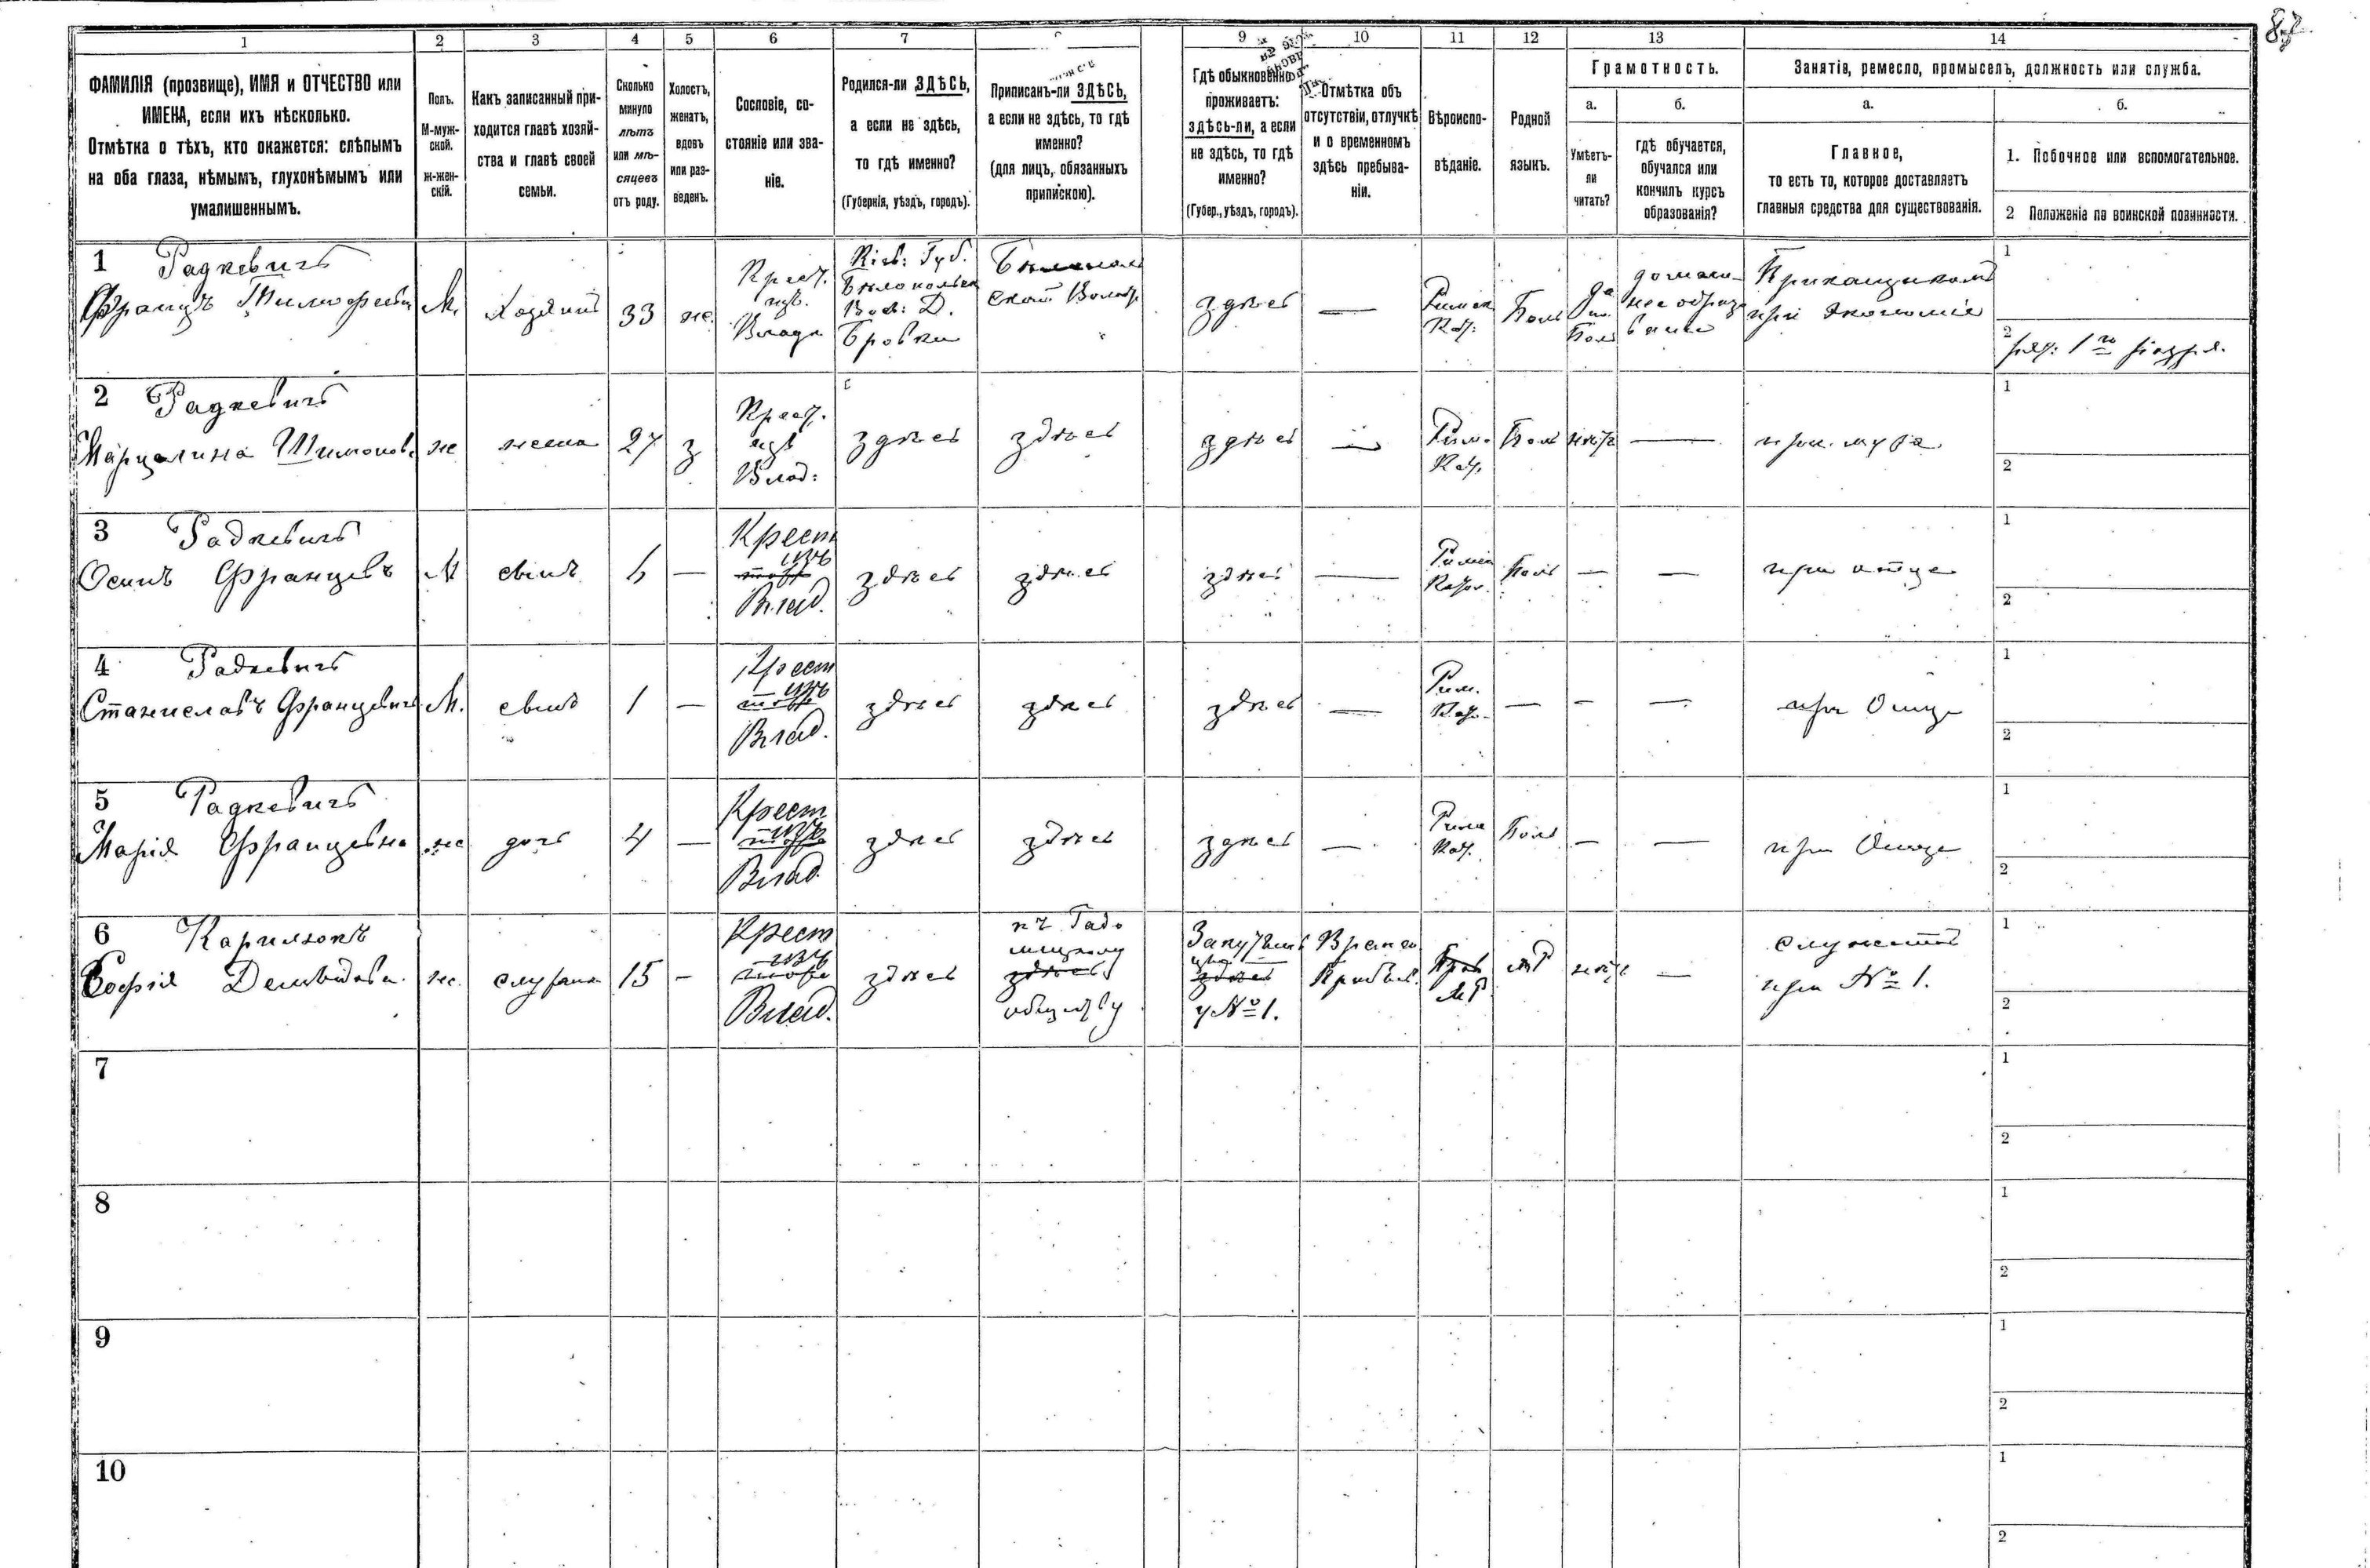 87.
1 2 3 4 5 6 7 9 10 11 12 13 14
ФАМИЛІЯ (прозвище), ИМЯ и ОТЧЕСТВО или
ИМЕНА, если ихъ нѣсколько.
Отмѣтка о тѣхъ, кто окажется: слѣпымъ
на оба глаза, нѣмымъ, глухонѣмымъ или
умалишеннымъ.
Полъ.
М-муж-
ской.
ж-жен-
скій.
Какъ записанный при-
ходится главѣ хозяй-
ства и главѣ своей
семьи.
Сколько
минуло
лѣтъ
или мѣ-
сяцевъ
отъ роду.
Холостъ,
женатъ,
вдовъ
или раз-
веденъ.
Сословіе, со-
стояніе или зва-
ніе.
Родился-ли ЗДѢСЬ,
а если не здѣсь,
то гдѣ именно?
(Губернія, уѣздъ, городъ).
Приписанъ-ли ЗДѢСЬ,
а если не здѣсь, то гдѣ
именно?
(для лицъ, обязанныхъ
припискою).
Гдѣ обыкновенно
проживаетъ:
здѣсь-ли, а если
не здѣсь, то гдѣ
именно?
(Губер., уѣздъ, городъ).
Отмѣтка объ
отсутствіи, отлучкѣ
и о временномъ
здѣсь пребыва-
ніи.
Вѣроиспо-
вѣданіе.
Родной
языкъ.
Грамотность.
а.
Умѣетъ-
ли
читать?
б.
гдѣ обучается,
обучался или
кончилъ курсъ
образованія?
Занятія, ремесло, промыселъ, должность или служба.
а.
Главное,
то есть то, которое доставляетъ
главныя средства для существованія.
б.
1. Побочное или вспомогательное.
2 Положеніе по воинской повинности.
1 Радкевичъ
Францъ
М.
Хозяинъ
33
же.
Крест.
изъ
Владл
Кіев: Губ.
Д.
Бровки
ской Волос.
здѣсь
—
Римск
Кат.
Поль
да
по
Поль
Прикащикомъ
при экономіи
1
2
2 Радкевичъ
Марцелина Шимонов.
же
жена
27
з
Крест.
изъ
Влад:
здѣсь
здѣсь
здѣсь
—
Рим.
Кат.
Поль
нѣтъ
—
при мужѣ
1
2
3 Радкевичъ
Осипъ Францовъ
М
свінъ
6
—
Крест
изъ
Влад.
здѣсь
здѣсь
здѣсь
—
Римск
Като.
Поль
—
—
при отце
1
2
4 Радкевичъ
Станиславъ Францевичъ
М.
свінъ
1
—
Крест
изъ
Влад.
здѣсь
здѣсь
здѣсь
—
Рим.
Като.
—
—
—
при Отце
1
2
5 Радкевичъ
Марія Францевна
же
дочь
4
—
Крест
изъ
Влад.
здѣсь
здѣсь
здѣсь
—
Рим
Кат.
Поль
—
—
при Отце
1
2
6
Софія
же.
15
-
Крест
изъ
Влад.
здѣсь
къ
здѣсь
обществу
здѣсь
у № 1.
Времен
Прав
МР
МР
нѣтъ
—
при № 1.
1
2
7
1
2
8
1
2
9
1
2
10
1
2